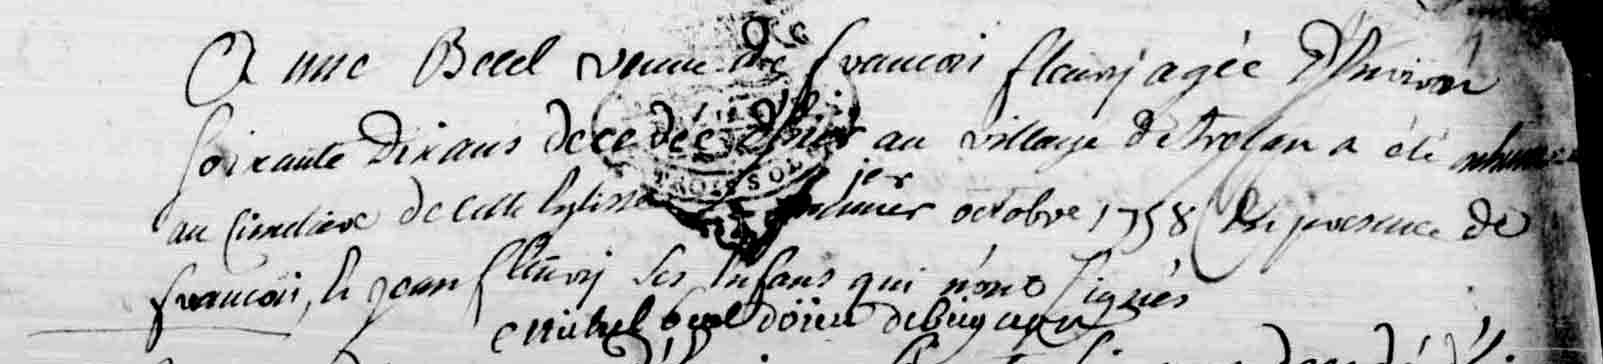 Anne Becel veuve de francois fleury agée d'Environ
soixante Dix ans decedée d'hier au village de trolan a été inhumée
au Cimetiere de cette Eglise le premier octobre 1758 En presence de
francois, & jean fleury ses Enfans qui n'ont signés
michel doïen de bignan